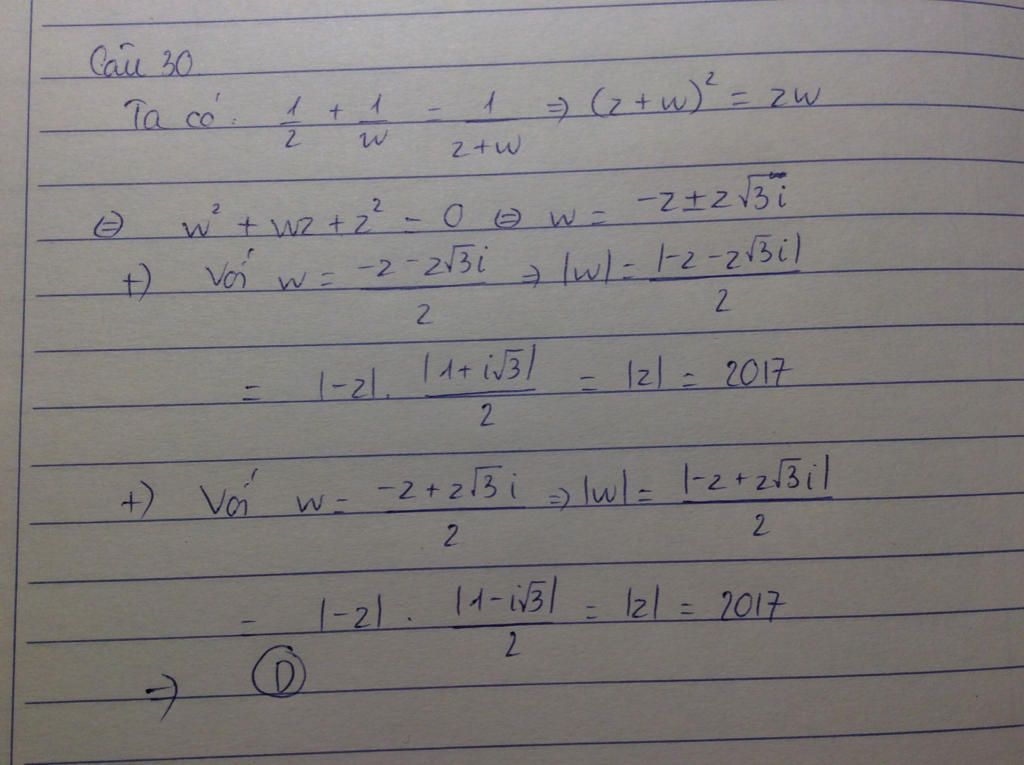 Câu 30.
Ta có: 1/z + 1/w = 1/(z+w) ⇒ (z+w)² = zw
⇔ w² + wz + z² = 0 ⇔ w = -z ± z√3i
+) Với w = (-z - z√3i)/2 ⇒ |w| = |-z - z√3i|/2
= |-z| . |1+i√3|/2 = |z| = 2017
+) Với w = (-z + z√3i)/2 ⇒ |w| = |-z + z√3i|/2
= |-z| . |1-i√3|/2 = |z| = 2017
⇒ D